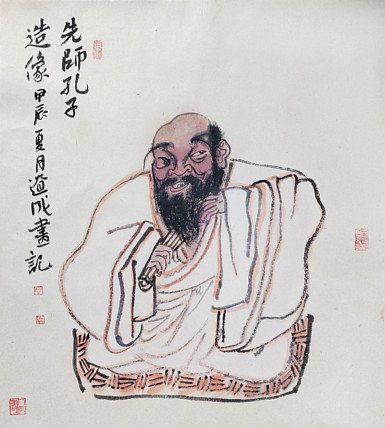 先師孔子
造像甲辰夏月道成畫記